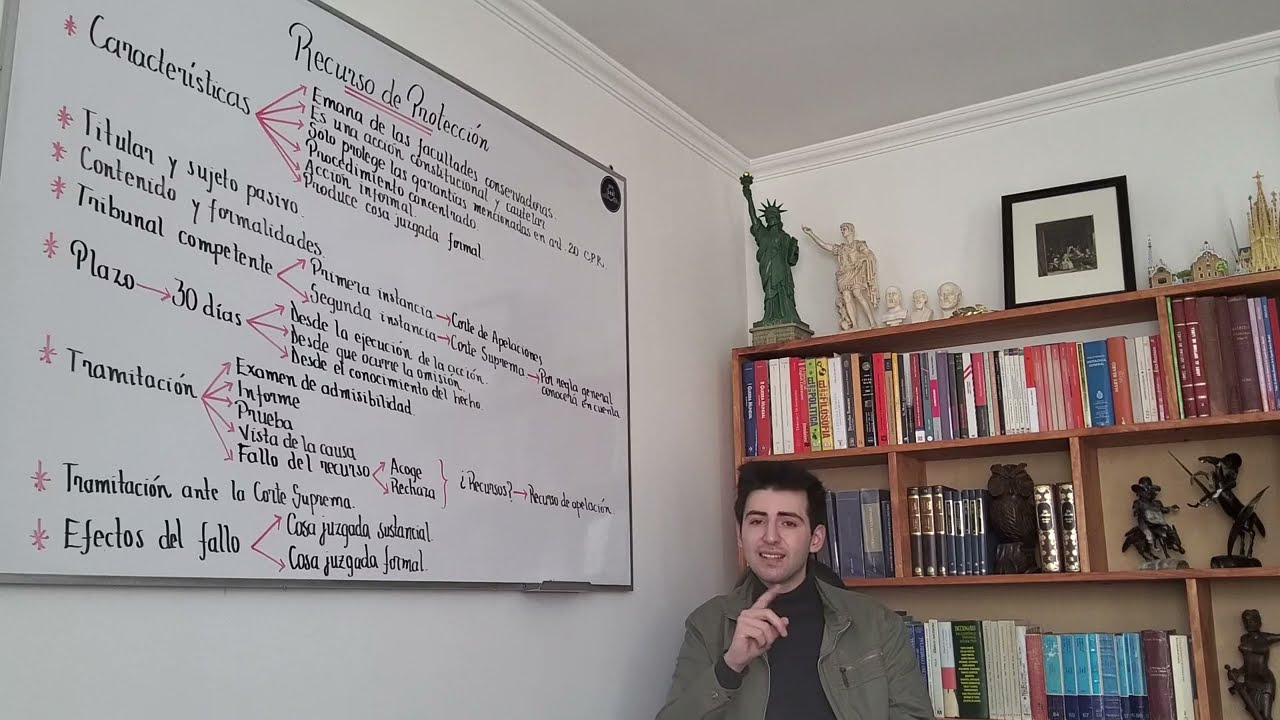 Recurso de Protección
* Características
Emana de las facultades conservadoras.
Es una acción constitucional y cautelar
Solo protege las garantías mencionadas en art. 20 C.P.R.
Procedimiento concentrado.
Acción informal.
Produce cosa juzgada formal.
* Titular y sujeto pasivo.
* Contenido y formalidades.
* Tribunal competente
Primera instancia → Corte de Apelaciones
Segunda instancia → Corte Suprema → Por regla general
conocerá en cuenta
* Plazo → 30 días
Desde la ejecución de la acción.
Desde que ocurre la omisión.
Desde el conocimiento del hecho
* Tramitación
Examen de admisibilidad
Informe
Prueba
Vista de la causa
Fallo del recurso
Acoge
Rechaza
¿Recursos? → Recurso de apelación.
* Tramitación ante la Corte Suprema.
* Efectos del fallo
Cosa juzgada sustancial.
Cosa juzgada formal.
FILOSOFÍA
DICCIONARIO